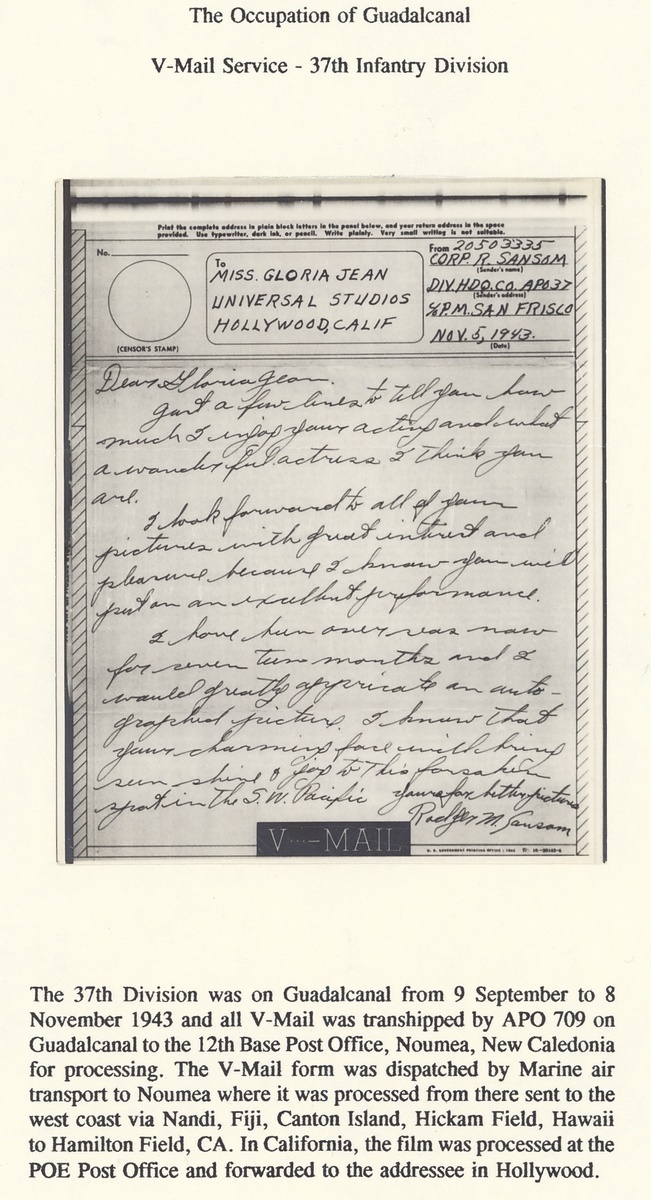 The Occupation of Guadalcanal
V-Mail Service - 37th Infantry Division
Print the complete address in plain block letters in the panel below, and your return address in the space
provided. Use typewriter, dark ink, or pencil. Write plainly. Very small writing is not suitable.
No.
(CENSOR'S STAMP)
To
MISS. GLORIA JEAN
UNIVERSAL STUDIOS
HOLLYWOOD, CALIF
From 20503335
CORP. R. SANSOM
(Sender's name)
DIV. HDQ. CO. APO 37
(Sender's address)
℅ P.M. SAN FRISCO
NOV. 5, 1943.
(Date)
Dear Gloria Jean.
Just a few lines to tell you how
much I enjoy your acting and what
a wonderful actress I think you
are.
I look forward to all of your
pictures with great interest and
pleasure because I know you will
put on an excellent performance.
I have been over seas now
for seven teen months and I
would greatly appricate an auto-
graphed picture. I know that
your charming face will bring
sun shine & joy to this forsaken
spot in the S.W. Pacific yours for better pictures
Rodger M. Sansom
V···-MAIL
U. S. GOVERNMENT PRINTING OFFICE : 1943
The 37th Division was on Guadalcanal from 9 September to 8
November 1943 and all V-Mail was transhipped by APO 709 on
Guadalcanal to the 12th Base Post Office, Noumea, New Caledonia
for processing. The V-Mail form was dispatched by Marine air
transport to Noumea where it was processed from there sent to the
west coast via Nandi, Fiji, Canton Island, Hickam Field, Hawaii
to Hamilton Field, CA. In California, the film was processed at the
POE Post Office and forwarded to the addressee in Hollywood.